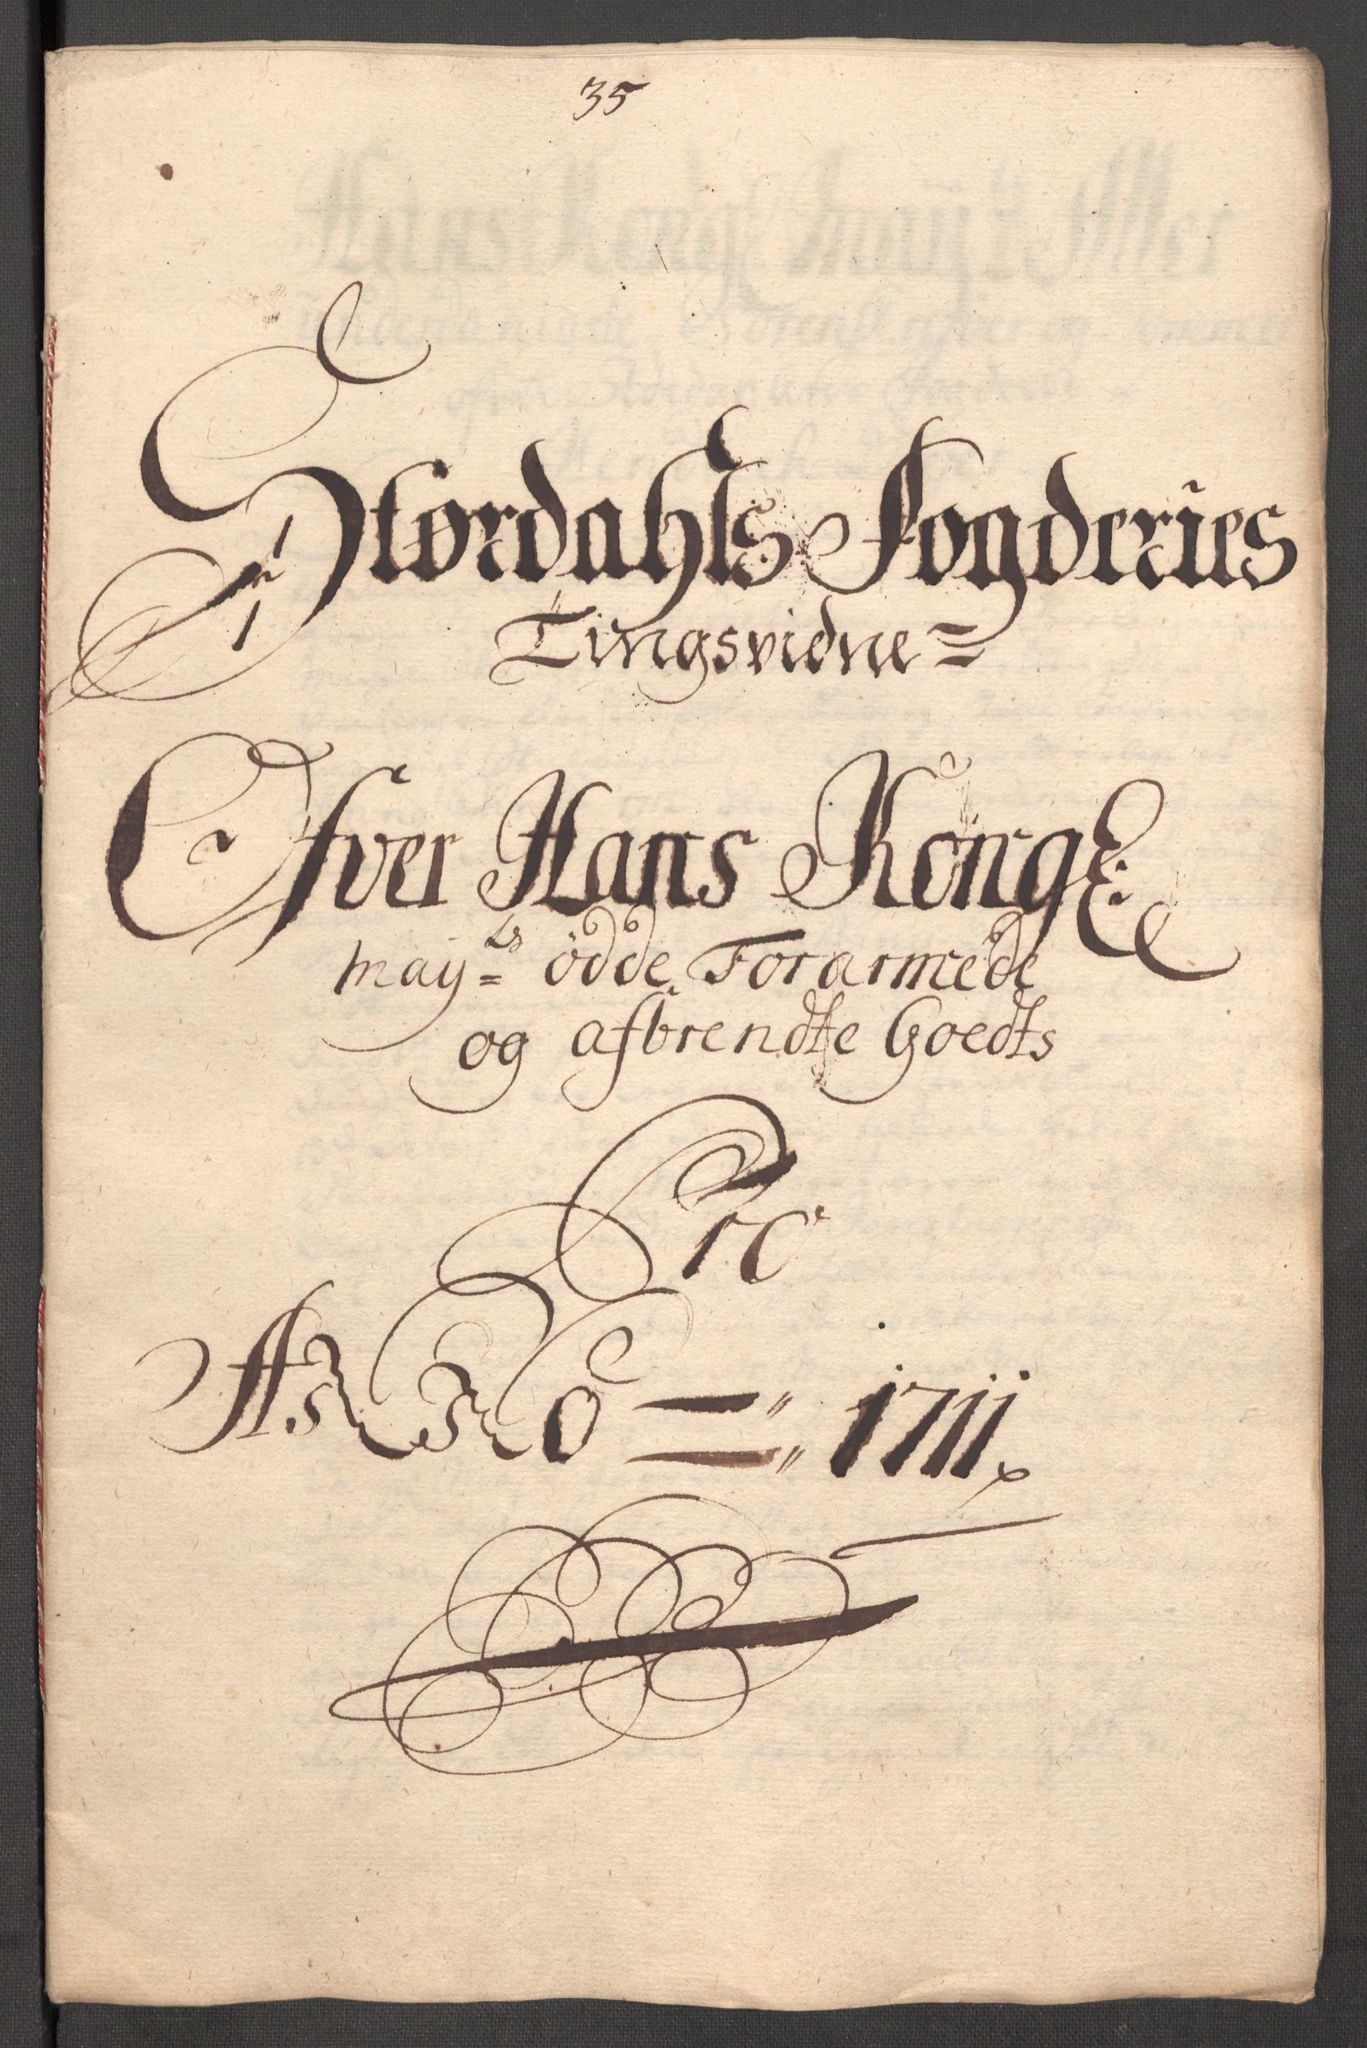 35
Størdahls Fogderies
Tingsvidne=
Ofver Hans Kongl:
may=ts ödde Forarmede
og afbrendte Goedts
Pro
ANNO = 1711